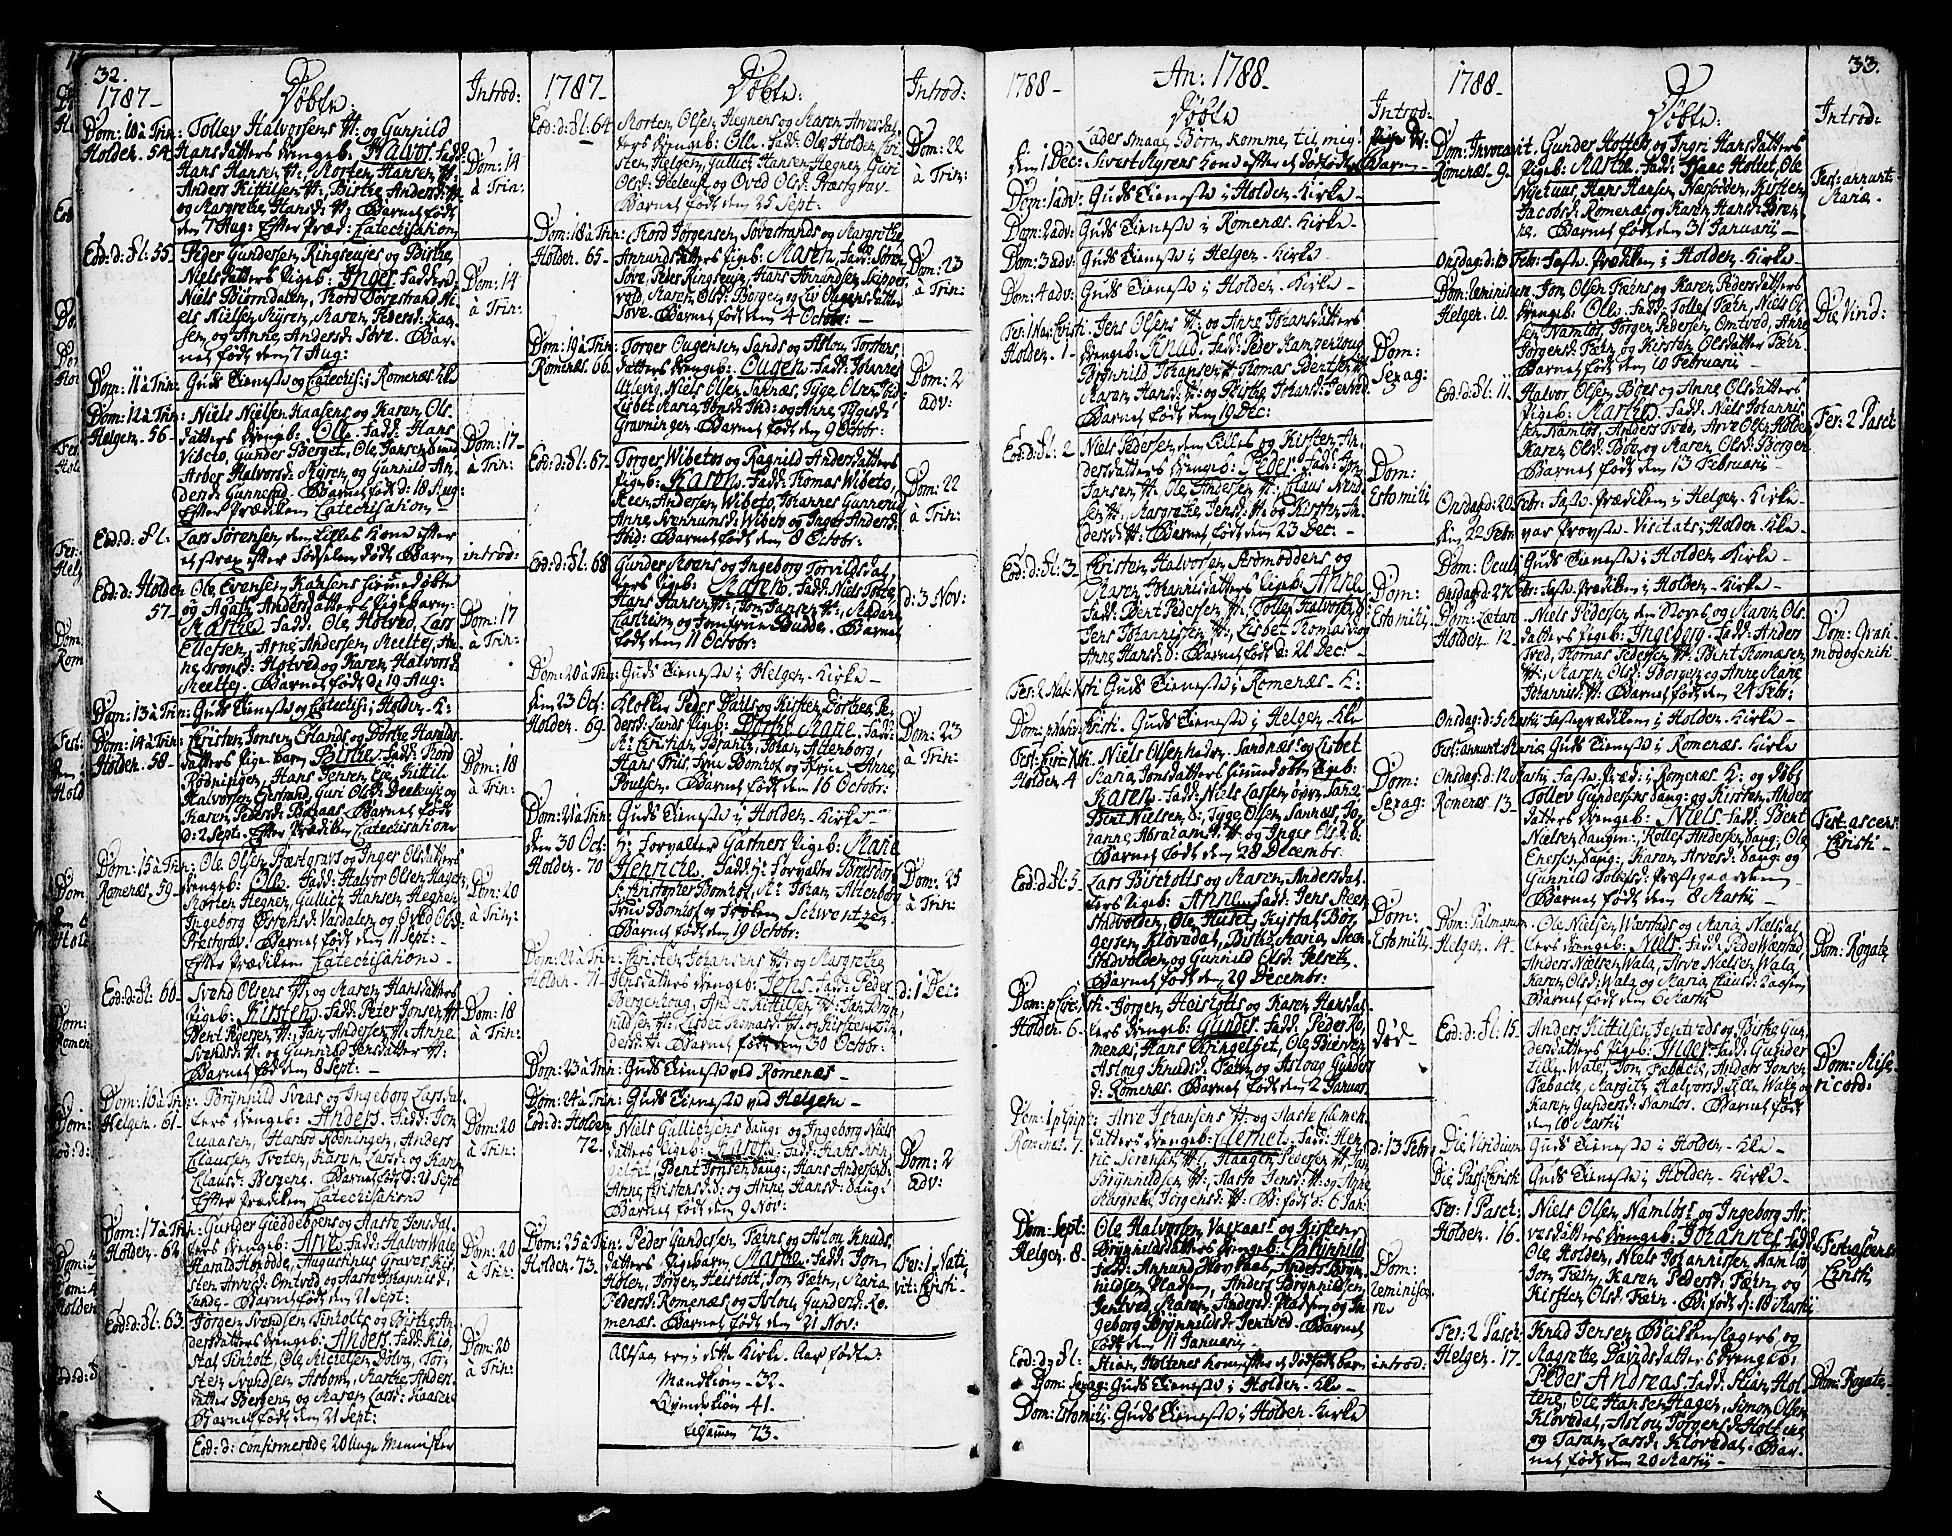 32.
1787-
Døbte:
Introd:
Dom: 10 à Trin: Tollev Halvorsens ... og Gunnild
Holden. 54. Hansdatters drengeb: Halvor. Fadd:
Hans Hansen ... Morten Hansen ...
Anders Kittilsen ... Birthe Anders d:
og Margrethe Hansd: ... Barnet født
den 7 Aug: Efter Præd: Catechisation
Dom: 14
à Trin:
Eod: d: Fl: 55. Peder Gundersen Ringsevjes og Birthe
Nielsdatters pigeb: Inger. Faddere
Niels Biørndalen, Thord Sovestrand Ni-
els Nielsen Myren, Maren Pedersd:
sen og Anne Andersd: Sove. Bar-
net født den 7 Aug:
Dom: 14
à Trin:
Dom: 11 à Trin: Guds Tieneste og Catechis: i Romenæs Kke
Dom: 12 à Trin: Niels Nielsen Kaasens og Karen Ols-
Helgen. 56. datters drengeb: Ole. Fadd: Hans
Vibeto, Gunder Berget, Ole Jansen
Halvorsd: Myren og Gunnild An-
dersd: Barnet født d: 18 Aug:
Efter Prædiken Catechisation
Dom: 17
à Trin:
Eod: d: Fl: Lars Sørensen den Lilles Kone efter
et strax efter Fødselen dødt Barn
introd:
Eod: d: Holden Ole Evensen Kaasens hiemmedøbte
57. og Agate Andersdatters pigebarn:
Marthe Fadd: Ole Holtved, Lars
Ellefsen, Arne Andersen Meelte, An-
ne Holtved og Karen Halvorsd:
Meeltej. Barnet født d: 19 Aug:
Dom: 17
à Trin:
Dom: 13 à Trin: Guds Tieneste og Catechis: i Holden K:
Dom: 14 à Trin: Kristen Jonsen Erlands og Dorthe Harolds
Holden. 58. datters pige barn Birthe. Fadd: Thord
Rødningen, Hans Jensen Eje, Kittil
Halvorsen Gierstrand, Guri Olsd: Deeleuse og
Karen Pedersd: Baraas. Barnet født
d: 2 Sept: Efter Prædiken Catechisation
Dom: 18
à Trin:
Dom: 15 à Trin: Ole Olsen Præstgravs og Inger Olsdatters
Romenæs. 59. drengeb: Ole. Fadd: Halvor Olsen Hagen,
Morten Hegnen, Gullich Hansen Hegnen,
Ingeborg Sørensd: Vasdalen og Oved Olsd:
Præstgrav. Barnet født den 11 Sept:
Efter Prædiken Catechisation
Dom: 20
à Trin:
Eod: d: Fl: 60. Svend Olsens ... og Maren Hansdatters
pigeb: Kirsten. Fadd: Peter Jonsen
Bent Pedersen ... Jan Andersen ... Anne
Svendsd: ... og Gunnild Jensdatter
Barnet født den 8 Sept:
Dom: 18
à Trin:
Dom: 16 à Trin: Brynnild Sveas og Ingeborg Larsdat-
Helgen. 61. ters drengeb: Anders. Fadd: Jon
Kaasen, Harold Rødningen, Anders
Claussen Tveten, Karen Larsd: og Karen
Clausd: Bergene. Barnet født d: 21 Sept
Efter Prædiken Catechisation
Dom: 20
à Trin:
Dom: 17 à Trin: Gunder Gieddeboens og Aaste Jensdat-
Holden. 62. ters drengeb: Arve. Fadd: Halvor Wala
Harald Augustinus Graver, Kir-
sten Arvesd: Omtved og Aaste Johannisd:
Lunde. Barnet født den 21 Sept:
Dom: 20
à Trin:
Eod: d: Fl: 63. Jørgen Svendsen Tinholts og Birthe An-
dersdatters drengeb: Anders. Fadd: Kid-
stal Tinholt, Ole Michelsen Jolva, Tor-
sten Svendsen Aasborn, Marthe Anders-
datter Bergene og Maren Larsd: Kaasene
Barnet født den 21 Sept:
Dom: 20
à Trin:
Eod: d: confirmerede 20 Unge Mennisker
1787-
Døbte:
Introd:
Eod: d: Fl: 64. Morten Olsen Hegnens og Maren Arvesdat-
ters drengeb: Ole. Fadd: Ole Holden,
sten Helgen, Gullich Hansen Hegnen, Guri
Olsd: Deeleuse og Oved Olsd: Præstgrav.
Barnet født den 25 Sept:
Dom: 22
à Trin:
Dom: 18 à Trin: Thord Jørgensen Sovestrands og Margrethe
Holden. 65. Amundsdatters pigeb: Maren. Fadd: Søren
Sove, Peder Ringsevje, Hans Amundsen Skipper-
vold, Maren Olsd: Borgen og Liv Ougensdatter
Sove. Barnet født den 4 Octobr:
Dom: 23
à Trin:
Dom: 19 à Trin: Torger Ougensen Sands og Aslou Torstens-
Romenæs. 66. datters drengeb: Ougen. Fadd: Johannes
Ulevig, Niels Olsen Saknæs, Tygge Olsen ibid:
Lisbet Maria Jonsd: ibid: og Anne Tyggesd:
Gravningen. Barnet født den 9 Octobr:
Dom: 2
adv:
Eod: d: Fl: 67. Torger Wibetos og Ragnild Andersdatters
pigeb: Karen. Fadd: Thomas Wibeto,
Steen Andersen Wibeto, Johannes Gunnerud
Anne Svenumsd: Wibeto og Inger Andersd:
ibid: Barnet født den 8 Octobr:
Dom: 22
à Trin:
Eod: d: Fl: 68 Gunder Moens og Ingeborg Torvildsdat-
ters pigeb: Maren. Fadd: Niels
Hans Hansen ... Jon Jansen ... Madame
Castheim og Jomfrue Budde. Barnet
født den 11 Octobr:
d: 3 Nov:
Dom: 20 à Trin: Guds Tieneste i Helgen-Kirke
den 23 Oct: Klokker Peder Dahls og Kirsten Dorthea Pe-
Holden. 69. dersd: Lunds pigeb: Dorthe Marie. Fadd:
Mr: Cristian Brantz, Johan Altenborg
Hans Friis, Frue Bomhof og Frue Anne
Poulsen. Barnet født den 16 Octobr:
Dom: 23
à Trin:
Dom: 21 à Trin: Guds Tieneste i Holden-Kirke-
den 30 Oct: Hr: Forvalter Gartners pigeb: Marie
Holden. 70. Henriche. Fadd: Hr: Forvalter Bredsdorf
Hr: Christopher Bomhof, Mr: Johan Altenborg
Frue Bomhof og Frøken Schwentzen
Barnet født den 19 Octobr:
Dom: 25
à Trin:
Dom: 22 à Trin: Christen Johansens ... og Margrethe
Holden. 71. Jensdatters drengeb: Jens. Fadd: Peder
Bergenhoug, Anders Kittilsen ... Jan Bryn-
nildsen ... Lisbet Tomasd: ... og Kirsten An-
dersd: ... Barnet født den 30 Octobr:
d: 1 Dec:
Dom: 23 à Trin: Guds Tieneste ved Romenæs-
Dom: 24 à Trin: Guds Tieneste ved Helgen-
Eod: d: Holden Niels Gullichsens Saug: og Ingeborg Niels
72. datters pigeb: Karen. Fadd: Hans
Bent Jonsen Saug: Hans Andersen
Anne Christensd: og Anne Hansd: Saug:
Barnet født den 9 Nov:
Dom: 2
adv:
Dom: 25 à Trin: Peder Gundersen Færns og Aslou Knuds
Holden. 73. datters Pigebarn Marthe. Fadd: Jon
Holen, Jørgen Heistolt, Jon Færn, Maria
Pedersd: Romenæs og Aslou Gundersd: Ro-
menæs. Barnet født den 21 Nov:
Fer: 1 Nati-
vit: Christi-
Altsaa ere i dette Kirke-Aar fødte:
Mandkiøn-32.
Qvindekiøn 41.
tilsammen 73.
1788-
An: 1788.
Døbte
Introd:
Lader smaae Børn komme til mig!
den 1 Dec: Sivert Myrens Kone efter et dødfødt Barn-
Dom: 1 adv: Guds Tieneste i Holden-Kirke-
Dom: 2 adv: Guds Tieneste i Romenæs-Kirke
Dom: 3 adv: Guds Tieneste i Helgen-Kirke
Dom: 4 adv: Guds Tieneste i Holden-Kirke-
Fer: 1 Nat: Christi Jens Olsens ... og Anne Johansdatters
Holden. 1- drengeb: Knud. Fadd: Peder Kamperhoug
Brønnild Johansen ... Thomas Bentsen
Maren Hansd: ... og Birthe Johansd: Jenved
Barnet født den 19 Dec:
Dom:
Sexag:
Eod: d: Fl: 2 Niels Pedersen den Lilles og Kirsten An-
dersdatters drengeb: Peder. Fadd: Jon
Jansen ... Ole Andersen ... Klaus
sen ... Margrethe Jensd: ... og Kirsten An-
dersd: ... Barnet født den 23 Dec:
Dom:
Estomihi
Eod: d: Fl: 3- Kristen Halvorsen Strømoddens og
Maren Johannisdatters pigeb: Anne
Fadd: Bent Pedersen ... Tollev Halvorsen
Jens Johannissen ... Lisbet Thomasd: og
Anne Hansd: ... Barnet født d: 21 Dec:
Dom:
Estomihi
Fer: 2 Nat: Xsti Guds Tieneste i Romenæs-K:
Dom: p: Nat: Christi. Guds Tieneste i Helgen-Kke
Fest: Circ: Xsti. Niels Olsen nedre-Sandnæs og Lisbet
Holden 4 Maria Jonsdatters hiemmedøbte Pigeb:
Karen. Fadd: Niels Larsen øvre Sanæs
Bent Nielsen ... Tygge Olsen Sannæs, Jo-
hanne Abrahamsd: ... og Inger Olsd:
Barnet født den 28 Decembr:
Dom:
Sexag:
Eod: d: Fl: 5. Lars Bischolts og Maren Andersdat-
ters pigeb: Anne. Fadd: Jens Steen-
stadvolden, Ole Huset, Kistal Bor-
gersen Kløvedal, Birthe Maria Steen-
stadvolden og Gunnild Olsd:
Barnet født den 29 Decembr:
Dom:
Estomihi
Dom: p: Circ: Xsti- Jørgen Heistolts og Karen Hansdat-
Holden- 6. ters drengeb: Gunder. Fadd: Peder Ro-
menæs, Hans Kringelset, Ole Biervin
Aslaug Knudsd: Færn og Aslaug Gunders
d: Romenæs. Barnet født den 2 Januar
død-
Dom: 1 p: Epiph: Arve Johansens ... og Maste Clemen
Romenæs. 7. datters drengeb: Clemet. Fadd: Hen-
ric Sørensen ... Haagen Pedersen ... Jan
Brynnildsen ... Maste Jensd: ... og Anne
Margrete Jørgensd: ... B: født d: 6 Jan:
d: 13 Febr
Dom: Sept: Ole Halvorsen Vaskaas og Kirsten
Helgen 8. Brynnildsdatters drengeb: Brynnild
Fadd: Amund Hovkaas, Anders Bryn-
nildsen Pladsen, Anders Brynnildsen
Jentved, Maren Andersd: Pladsen og In-
geborg Brynnildsd: Jentved. Barnet
født den 11 Januarij
Dom:
Reminisce-
re
Eod: d: Fl: Stian Holtenes Kone efter et dødfødt barn
introd:
Dom: Sexag: Guds Tieneste i Holden-Kke-
Dom: Estomihi Guds Tieneste i Holden-Kirke
1788.
Døbte:
33.
Introd:
Dom: Invocavit. Gunder Holtets og Ingri Hansdatters
Romenæs. 9. pigeb: Marthe. Fadd: Isaac Holtet, Ole
Nyehuus, Hans Hansen Næsbodden, Kirsten
Jacobsd: Romenæs og Karen Hansd:
Barnet født den 31 Januarij-
Fest: annunt:
Mariæ.
Onsdag: d: 13 Febr: Faste Prædiken i Holden-Kirke
Dom: Reminiscen. Jon Olsen Færns og Karen Pedersdatters
Helgen. 10. drengeb: Ole. Fadd: Tollef Færn, Niels Ol-
sen Namløs, Jørgen Pedersen Omtved, Anne
Jørgensd: Færn og Kirsten Olsdatter Færn-
Barnet født den 10 Februarij-
Die Virid:
Eod: d: Fl: 11. Halvor Olsen Bøes og Anne Olsdatters
pigeb: Marthe. Fadd: Niels Johannis-
sen Namløs, Anders Tved, Arve Olsen Holden
Karen Olsd: Bøe og Maren Olsd: Borgen
Barnet født den 13 Februarij-
Fer: 2 Pasch
Onsdag d: 20 Febr: Faste Prædiken i Helgen-Kirke
den 22 Febr: var Provste-Visitats i Holden-Kke-
Dom: Oculi Guds Tieneste i Holden Kirke
Onsdag: d: 27 Febr: Faste Prædiken i Holden-Kirke-
Dom: Lætare Niels Pedersen den Stores og Maren Ols-
Holden. 12. datters pigeb: Ingeborg. Fadd: Anders
Tved, Thomas Pedersen ... Bent Thomasen
Maren Olsd: Borgen og Anne Marie
Johannisd: ... Barnet født den 24 Febr:
Dom: Qvasi-
modogeniti-
Onsdag: d: 5 Martij Fasteprædiken i Holden-Kirke-
Fest: annunt: Mariæ Guds Tieneste i Romenæs-Kirke
Onsdag: d: 12 Martij Faste Præd: i Romenæs K: og døbt
Romenæs 13. Tollev Gundersens Saug: og Kirsten Anders
datters drengeb: Niels. Fadd: Bent
Nielsen Saugen: Rollef Andersen Saug: Ole
Enersen Saug: Karen Arvesd: Saug: og
Gunnild Tolefsd: Præstegaarden-
Barnet født den 8 Martij-
Fest: ascens:
Christi-
Dom: Palmarum. Ole Nielsen Wærstads og Maria Nielsdat-
Helgen. 14. ters drengeb: Niels. Fadd: Peder Wærstad,
Anders Nielsen Wala, Arve Nielsen Wala
Karen Olsd: Wala og Maria Clausd: Kaasen
Barnet født den 6 Martij
Dom: Rogate
Eod: d: Fl: 15. Anders Kittilsen Jentveds og Birthe Gun-
dersdatters pigeb: Inger. Fadd: Gunder
Lille-Wala, Jon Babacle, Anders Jonsen
Babacle, Margith Halvorsd: Lille-Wala og
Karen Gundersd: Namløs. Barnet født
den 10 Martij
Dom: Mise-
ricord:
Die Viridium Guds Tieneste i Holden-Kke-
Die Pass: Christi Guds Tieneste i Holden-Kirke.
Fer: 1 Pasch: Niels Olsen Namløs og Ingeborg Ar-
Holden. 16. vesdatters drengeb: Johannes Fadd:
Ole Holden, Niels Johannissen Namløs
Jon Færn, Karen Pedersd: Færn og
Kirsten Olsd: Færn. B: født d: 18 Martij
Fest: ascens:
Christi
Fer: 2 Pasch: Knud Jensen Blikkenslagers og
Helgen. 17. Magrethe Davidsdatters drengeb:
Peder Andreas. Fadd: Stian Hol-
tene, Ole Hansen Hagen, Simon Olsen
Kløvedal, Aslou Jørgensd: Holtene
og Taran Larsd: Kløvedal: Bar-
net født den 20 Martij-
Dom: Rogate-